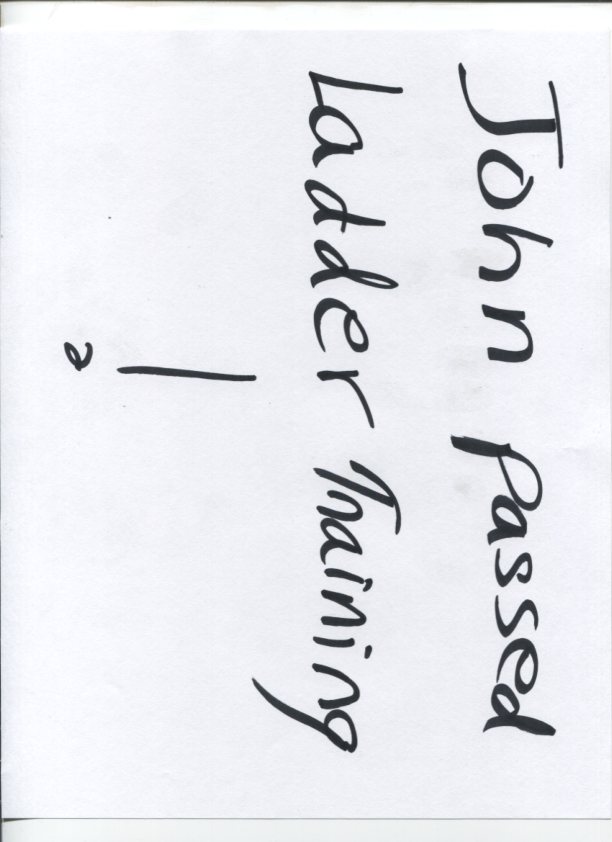 John Passed
Ladder Training
!